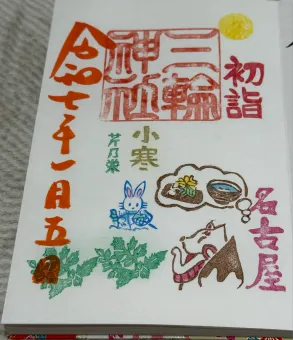 初詣
三輪
神社
小寒
芹乃栄
名古屋
令和七年一月五日